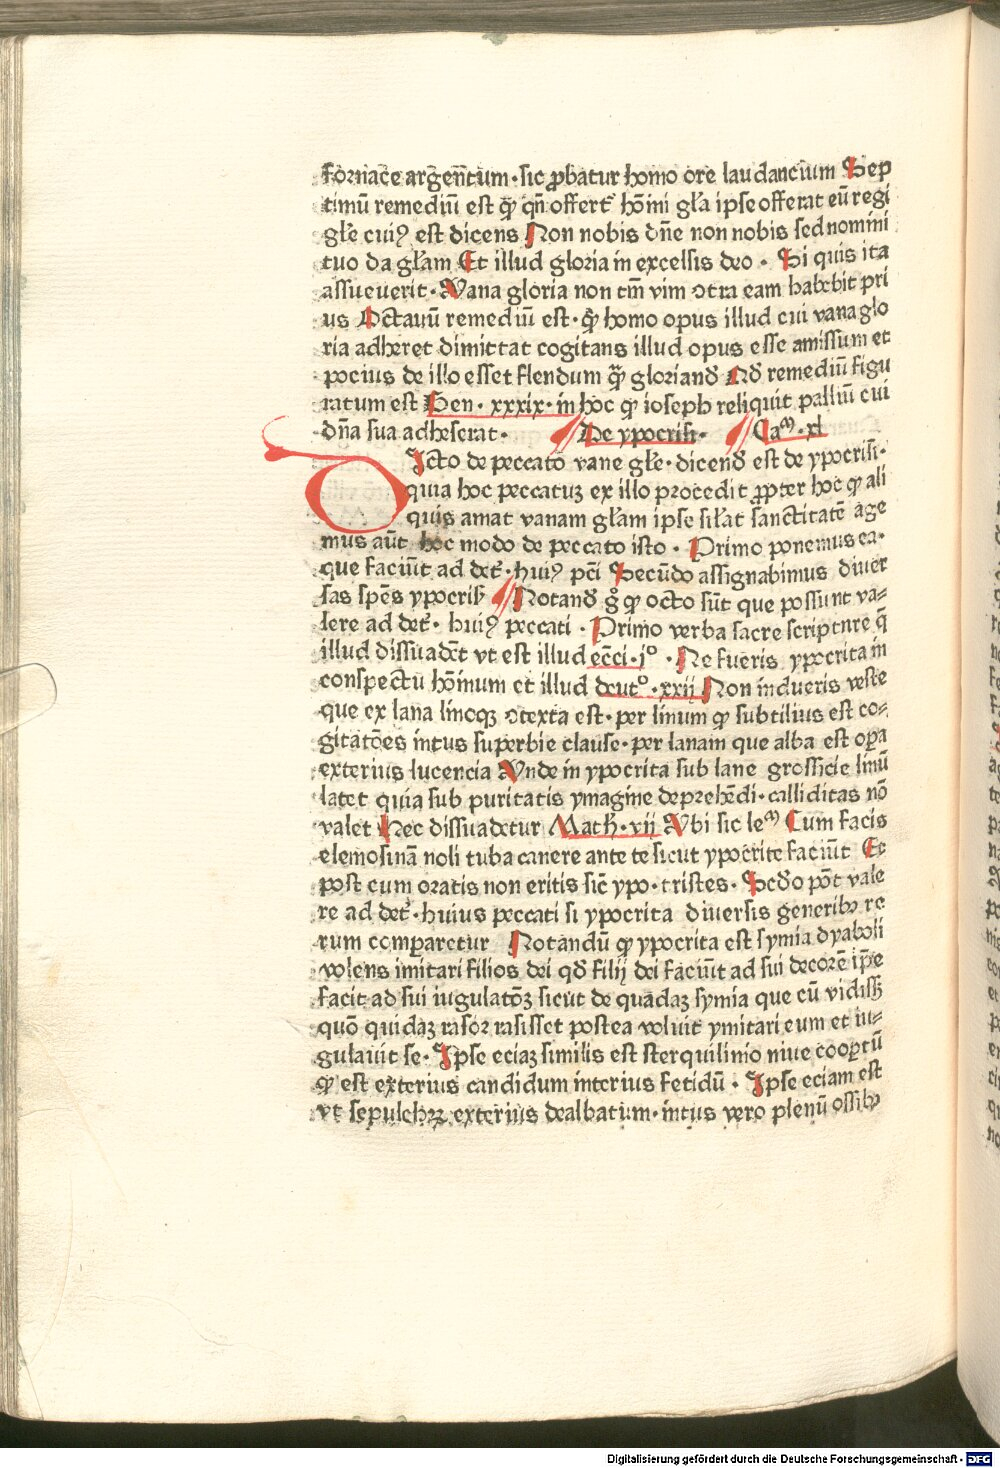 fornac̄e argēntum · sic ꝓbatur homo ore laudancium Sep
timū remediū est ꝙ qn̄ offert̄ hōini gl̄a ipse offerat eū regi
gl̄e cuiꝰ est dicens Non nobis dn̄e non nobis sed nomini
tuo da gl̄am Et illud gloria in excelsis deo · Si quis ita
assueuerit · Vana gloria non tm̄ vim ↄtra eam habebit pri
us Octauū remediū est · ꝙ homo opus illud cui vana glo
ria adheret dimittat cogitans illud opus esse amissum et
pocius de illo esset flendum qͣ̄ gloriand̄ Ad̄ remediū figu
ratum est Gen · xxxix · in hoc ꝙ ioseph reliquit palliū cui
dn̄a sua adheserat · De ypocrisi · Caᵐ · xl
DIcto de peccato vane gl̄e · dicend̄ est de ypocrisi ·
quia hoc peccatuꝫ ex illo procedit ꝓpter hoc ꝙ ali
quis amat vanam gl̄am ipse sil̄at sanctitatē age
mus aūt hoc modo de peccato isto · Primo ponemus ea ·
que faciūt ad det̄ · huiꝰ pc̄i Secūdo assignabimus diuer
sas sp̄es ypocrisꝭ Notand̄ gͦ ꝙ octo sūt que possunt va⸗
lere ad det̄ · huiꝰ peccati · Primo verba sacre scripture q̄
illud dissuadēt vt est illud ecc̄i · jº · Ne fueris ypocrita in
conspectu hōinum et illud deutº · xxij Non indueris veste
que ex lana linoqꝫ ↄtexta est · per linum ꝙ subtilius est co⸗
gitatōes intus superbie clause · per lanam que alba est oꝑa
exterius lucencia Vnde in ypocrita sub lane grossicie linū
latet quia sub puritatis ymagine deprehēdi · calliditas nō
valet Hec dissuadetur Math · vij Vbi sic leᵐ Cum facis
elemosinā noli tuba canere ante te sicut ypocrite faciūt Et
post cum oratis non eritis sic̄ ypo · tristes · Sc̄do pōt vale
re ad det̄ · huius peccati si ypocrita diuersis generibꝰ re
rum comparetur Notandū ꝙ ypocrita est symia dyaboli
volens imitari filios dei qd̄ filij dei faciūt ad sui decorē ip̄e
facit ad sui iugulatōꝫ sicut de quadaꝫ symia que cū vidissꝫ
quō quidaꝫ rasor rasisset postea voluit ymitari eum et iu⸗
gulauit se · Ipse eciaꝫ similis est sterquilinio niue cooꝑtū
ꝙ est exterius candidum interius fetidū · Ipse eciam est
vt sepulchꝝ exterius dealbatum · intus vero plenū ossibꝰ
Digitalisierung gefördert durch die Deutsche Forschungsgemeinschaft - DFG